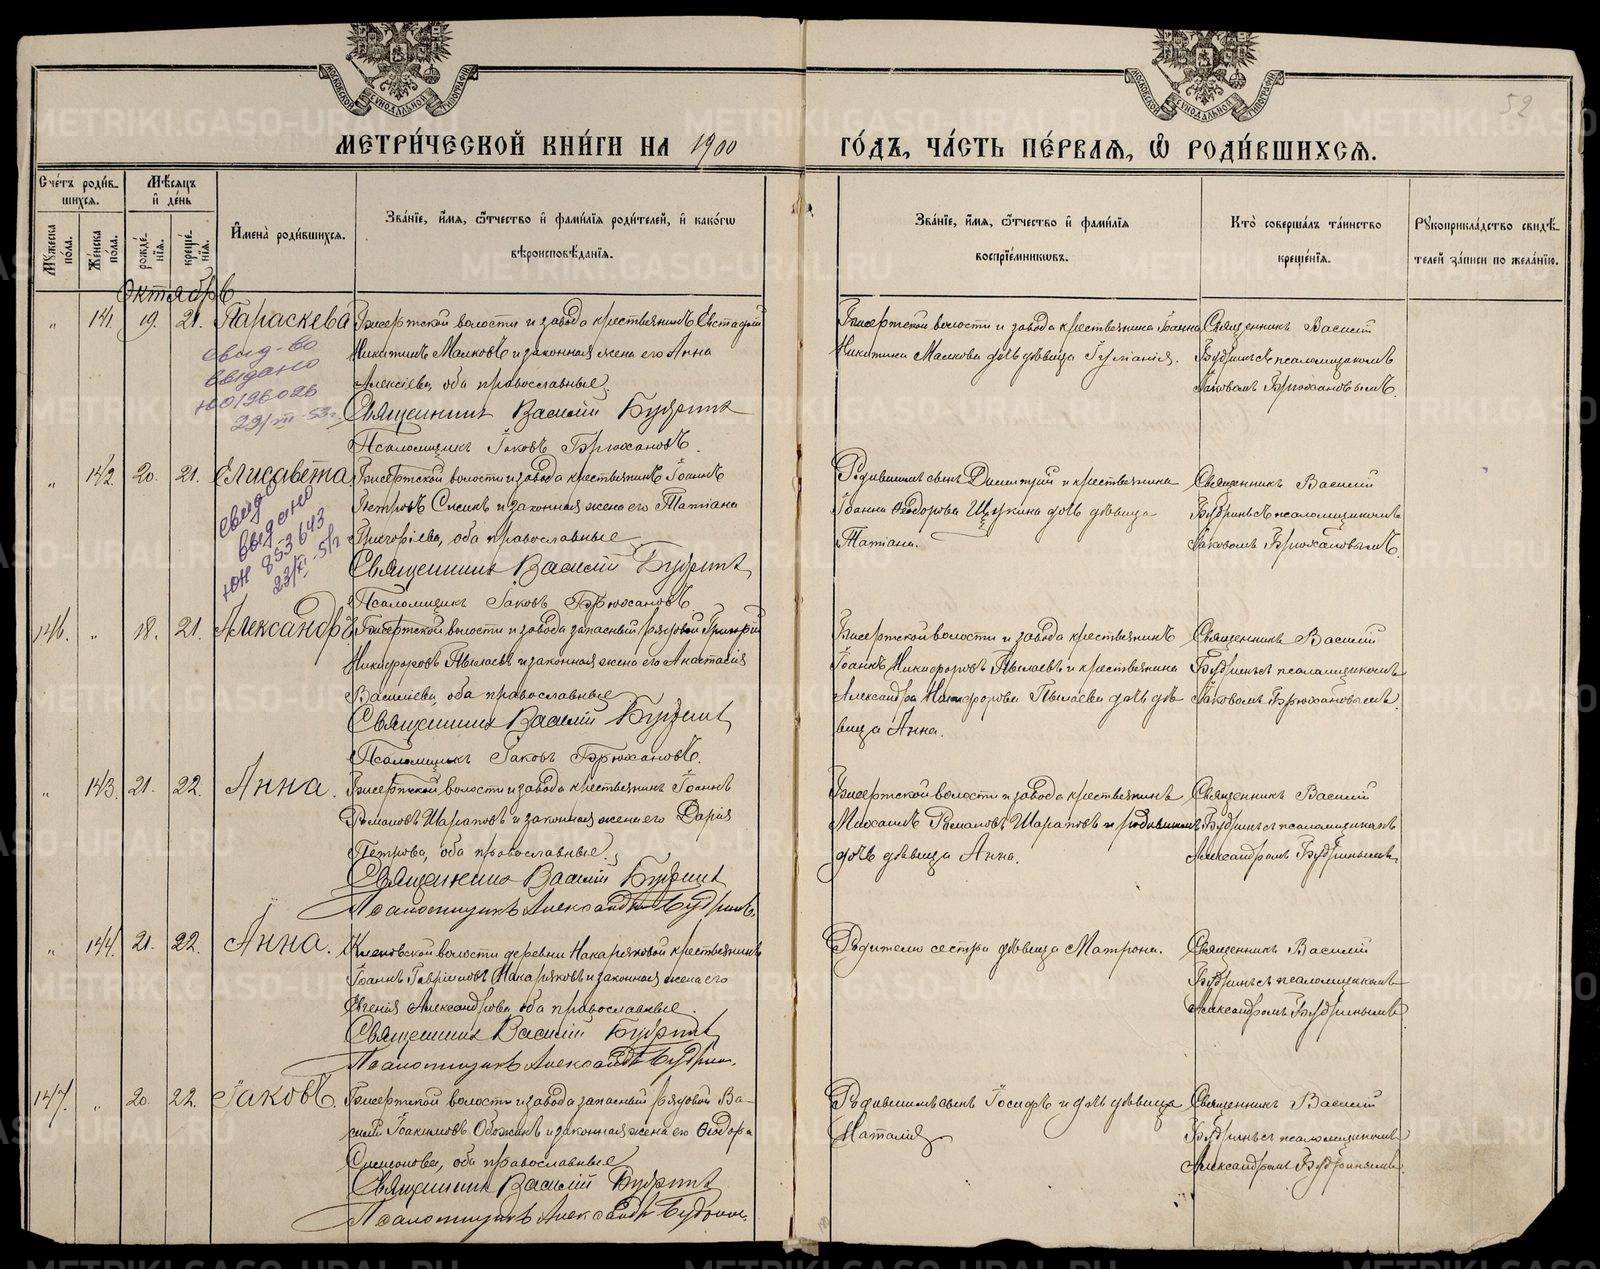 МОСКОВСКОЙ СѴНОДАЛЬНОЙ ТИПОГРАФІИ
МОСКОВСКОЙ СѴНОДАЛЬНОЙ ТИПОГРАФІИ
52
МЕТРИ́ЧЕСКОЙ КНИ́ГИ НА 1900 ГО́ДЪ, ЧА́СТЬ ПЕ́РВАѦ, Ѽ РОДИ́ВШИХСѦ.
Сче́тъ роди́в-
шихся.
Мѣсяцъ
и де́нь
Мужеска по́ла.
Же́нска по́ла.
рожде́нія.
креще́нія.
Имена̀ роди́вшихся.
Зва́ніе, и́мя, ѻтчество и фами́лія роди́телей, и како́гѡ
вѣроисповѣ́данія.
Зва́ніе, и́мя, ѻтчество и фами́лія
воспріе́мникѡвъ.
Кто̀ соверша́лъ та́инство
креще́нія.
Рукоприкла́дство свидѣ́-
телей за́писи по жела́нію.
Октябрь
" 141. 19. 21. Параскева
Бисертской волости и завода крестьянинъ Евстафій
Никитинъ Малковъ и законная жена его Анна
Алексіева, оба православные.
Священникъ Василій Будринъ
Псаломщикъ Іаковъ Брюхановъ.
Бисертской волости и завода крестьянина Іоанна
Никитина Малкова дочь дѣвица Іуліанія.
Священникъ Василій
Будринъ съ псаломщикомъ
Іаковомъ Брюхановымъ.
Свид-во
выдано
ЮО196026
29/III-53г.
" 142. 20. 21. Елисавета
Бисертской волости и завода крестьянинъ Іоаннъ
Петровъ Сысинъ и законная жена его Татіана
Григоріева, оба православные
Священникъ Василій Будринъ
Псаломщикъ Іаковъ Брюхановъ.
Родившимъ сынъ Димитрій и крестьянина
Іоанна Ѳеодорова Щукина дочь дѣвица
Татіана.
Священникъ Василій
Будринъ съ псаломщикомъ
Іаковомъ Брюхановымъ.
Свид
выдано
ЮН 853643
146. " 18. 21. Александръ
Бисертской волости и завода запасный рядовой Григорій
Никифоровъ Пылаевъ и законная жена его Анастасія
Василіева, оба православные
Священникъ Василій Будринъ
Псаломщикъ Іаковъ Брюхановъ.
Бисертской волости и завода крестьянинъ
Іоаннъ Никифоровъ Пылаевъ и крестьянина
Александра Никифорова Пылаева дочь дѣ-
вица Анна.
Священникъ Василій
Будринъ съ псаломщикомъ
Іаковомъ Брюхановымъ.
" 143. 21. 22. Анна.
Бисертской волости и завода крестьянинъ Іоаннъ
Романовъ Шараповъ и законная жена его Дарія
Петрова, оба православные.
Священникъ Василій Будринъ
Псаломщикъ Александръ Будринъ.
Бисертской волости и завода крестьянинъ
Михаилъ Романовъ Шараповъ и родившимъ
дочь дѣвица Анна.
Священникъ Василій
Будринъ съ псаломщикомъ
Александромъ Будринымъ.
" 144. 21. 22. Анна.
Кленовской волости деревни Накаряковой крестьянинъ
Іоаннъ Гавріиловъ Накаряковъ и законная жена его
Евгенія Александрова, оба православные.
Священникъ Василій Будринъ
Псаломщикъ Александръ Будринъ.
Родителю сестра дѣвица Матрона.
Священникъ Василій
Будринъ съ псаломщикомъ
Александромъ Будринымъ.
147. " 20. 22. Іаковъ.
Бисертской волости и завода запасный рядовой Ва-
силій Іоакимовъ Обожинъ и законная жена его Ѳеодора
Симеонова, оба православные
Священникъ Василій Будринъ
Псаломщикъ Александръ Будринъ.
Родившимъ сынъ Іосифъ и дочь дѣвица
Наталія
Священникъ Василій
Будринъ съ псаломщикомъ
Александромъ Будринымъ.
METRIKI.GASO-URAL.RU